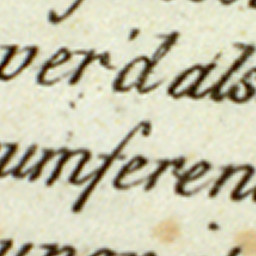 ver'd als
umferen